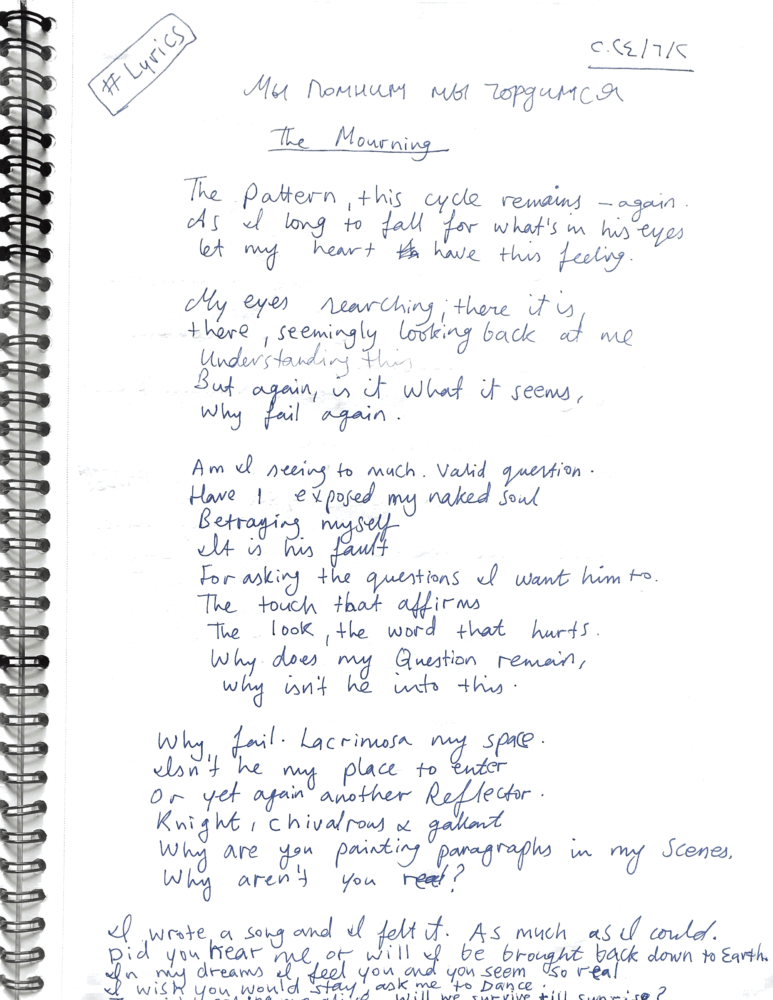 # Lyrics
Мы помним мы гордимся
The Mourning
The pattern, this cycle remains – again.
As I long to fall for what's in his eyes
let my heart have this feeling.
My eyes searching, there it is,
there, seemingly looking back at me
Understanding this
But again, is it what it seems,
Why fail again.
Am I seeing to much. Valid question.
Have I exposed my naked soul
Betraying myself
It is his fault
For asking the questions I want him to.
The touch that affirms
The look, the word that hurts.
Why does my Question remain,
why isn't he into this.
Why fail. Lacrimosa my space.
Isn't he my place to enter
Or yet again another Reflector.
Knight, chivalrous & gallant
Why are you painting paragraphs in my Scenes.
Why aren't you real?
I wrote a song and I felt it. As much as I could.
Did you hear me or will I be brought back down to Earth.
In my dreams I feel you and you seem so real
I wish you would stay, ask me to Dance.
Will we survive till sunrise?